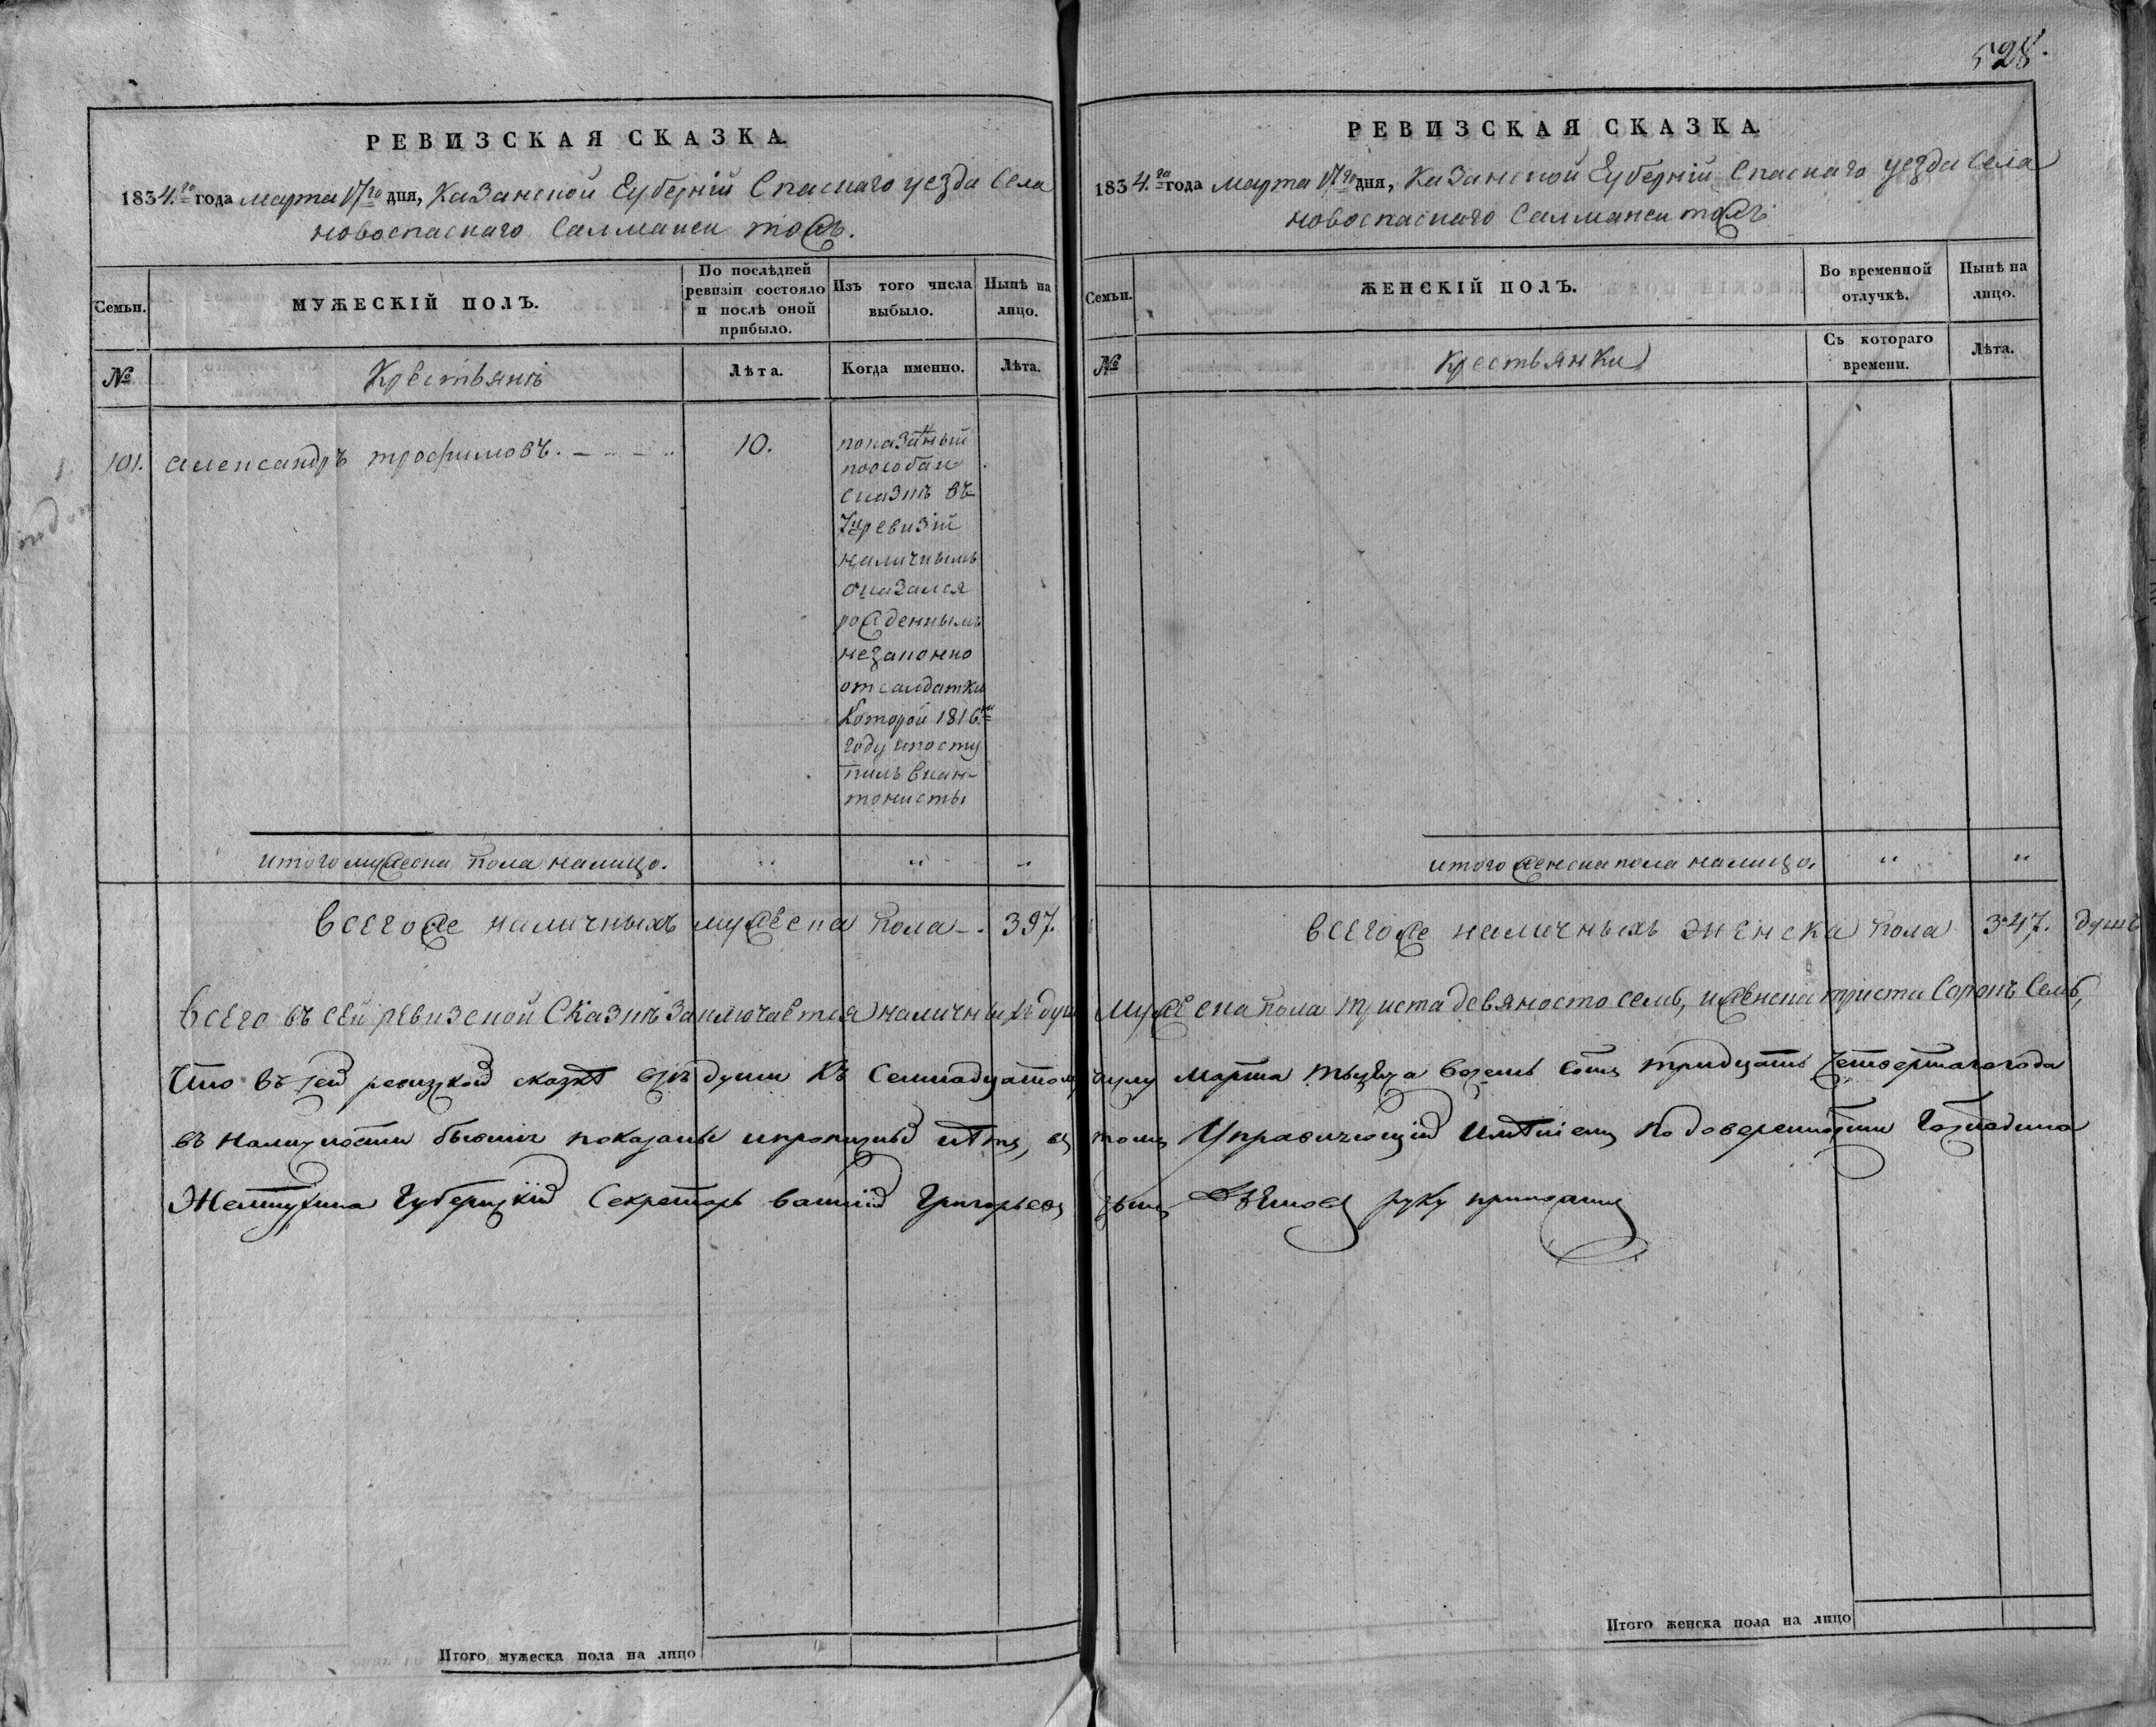 528.
РЕВИЗСКАЯ СКАЗКА.
1834.го года марта 17го дня, Казанской Губерніи Спаскаго уезда Села
новоспаскаго Салманси тожъ.
Семьи.
МУЖЕСКІЙ ПОЛЪ.
По послѣдней
ревизіи состояло
и послѣ оной
прибыло.
Изъ того числа
выбыло.
Нынѣ на
лицо.
№
Крестьянѣ
Лѣта.
Когда именно.
Лѣта.
101. александръ трофимовъ.
10.
показанный
пособой
сказкѣ въ
7й ревизіи
наличнымъ
оказался
рожденнымъ
незаконно
от салдатки
Которой 1816м
году и посту
пилъ в кан-
тонисты
итого мужеска пола налицо. „ „ „
всегоже наличныхъ мужеска пола -. 397.
РЕВИЗСКАЯ СКАЗКА.
1834.го года марта 17го дня, Казанской Губерніи Спаскаго уезда Села
новоспаскаго Салманси тожъ
Семьи.
ЖЕНСКІЙ ПОЛЪ.
Во временной
отлучкѣ.
Нынѣ на
лицо.
№
Крестьянки
Съ котораго
времени.
Лѣта.
итого женска пола налицо. „ „
всегоже наличныхъ женска пола 347. душъ
Всего въ сей ревизской Сказкѣ заключается наличныхъ душ мужеска пола триста девяносто семь, и женска триста Сорокъ Семь,
Что въ сей ревизской сказкѣ всѣ души къ Семнадцатому числу Марта тысяща восемь сотъ тридцать четвертаго года
въ наличности бывшіе показаны и прописныхъ нѣтъ, въ томъ Управляющій Имѣніемъ по доверенности Господина
Желтухина Губернскій Секретарь Григорьевъ сынъ руку приложилъ
Итого мужеска пола на лицо
Итого женска пола на лицо